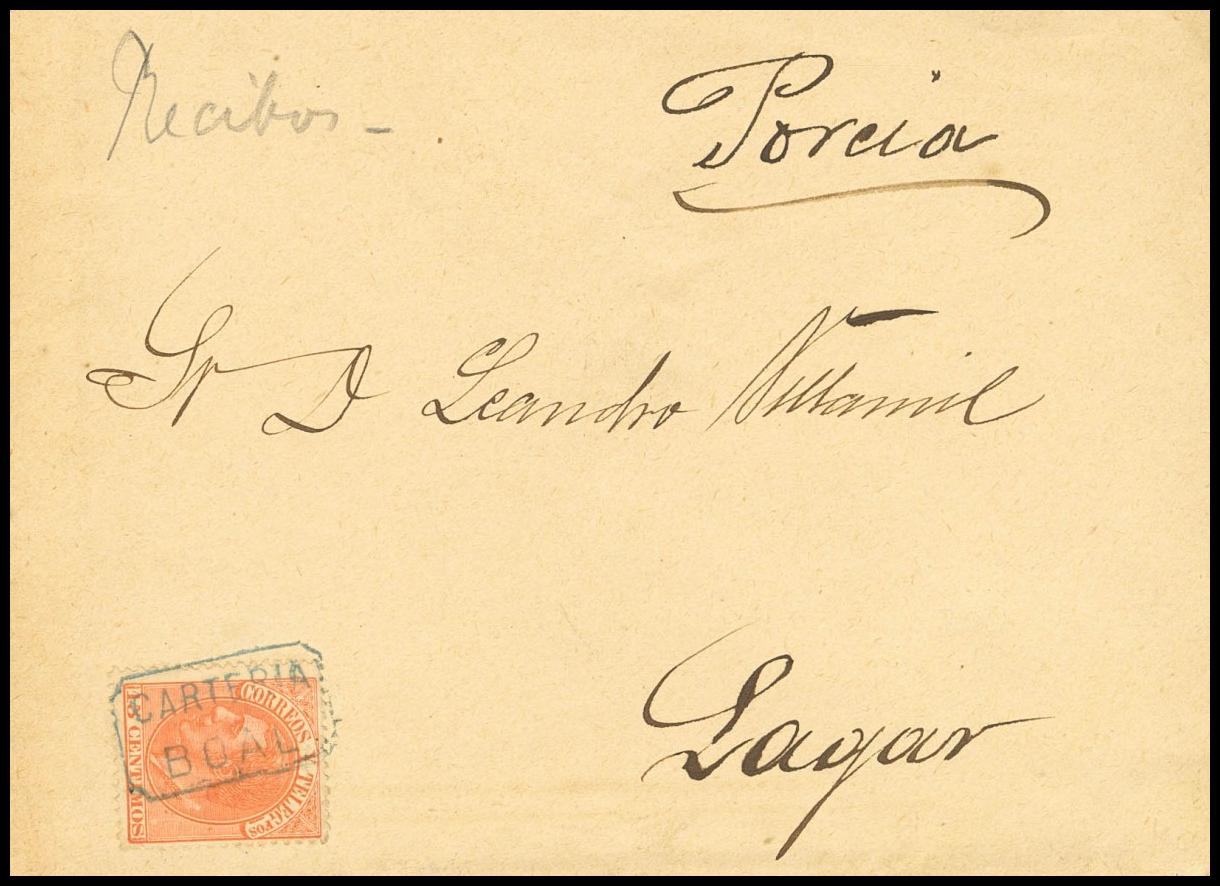 Recibos -
Porcia
Sr D Leandro Villamil
Lagar
CARTERIA
BOAL
CORREOS Y TELEGFOS
15 CENTIMOS